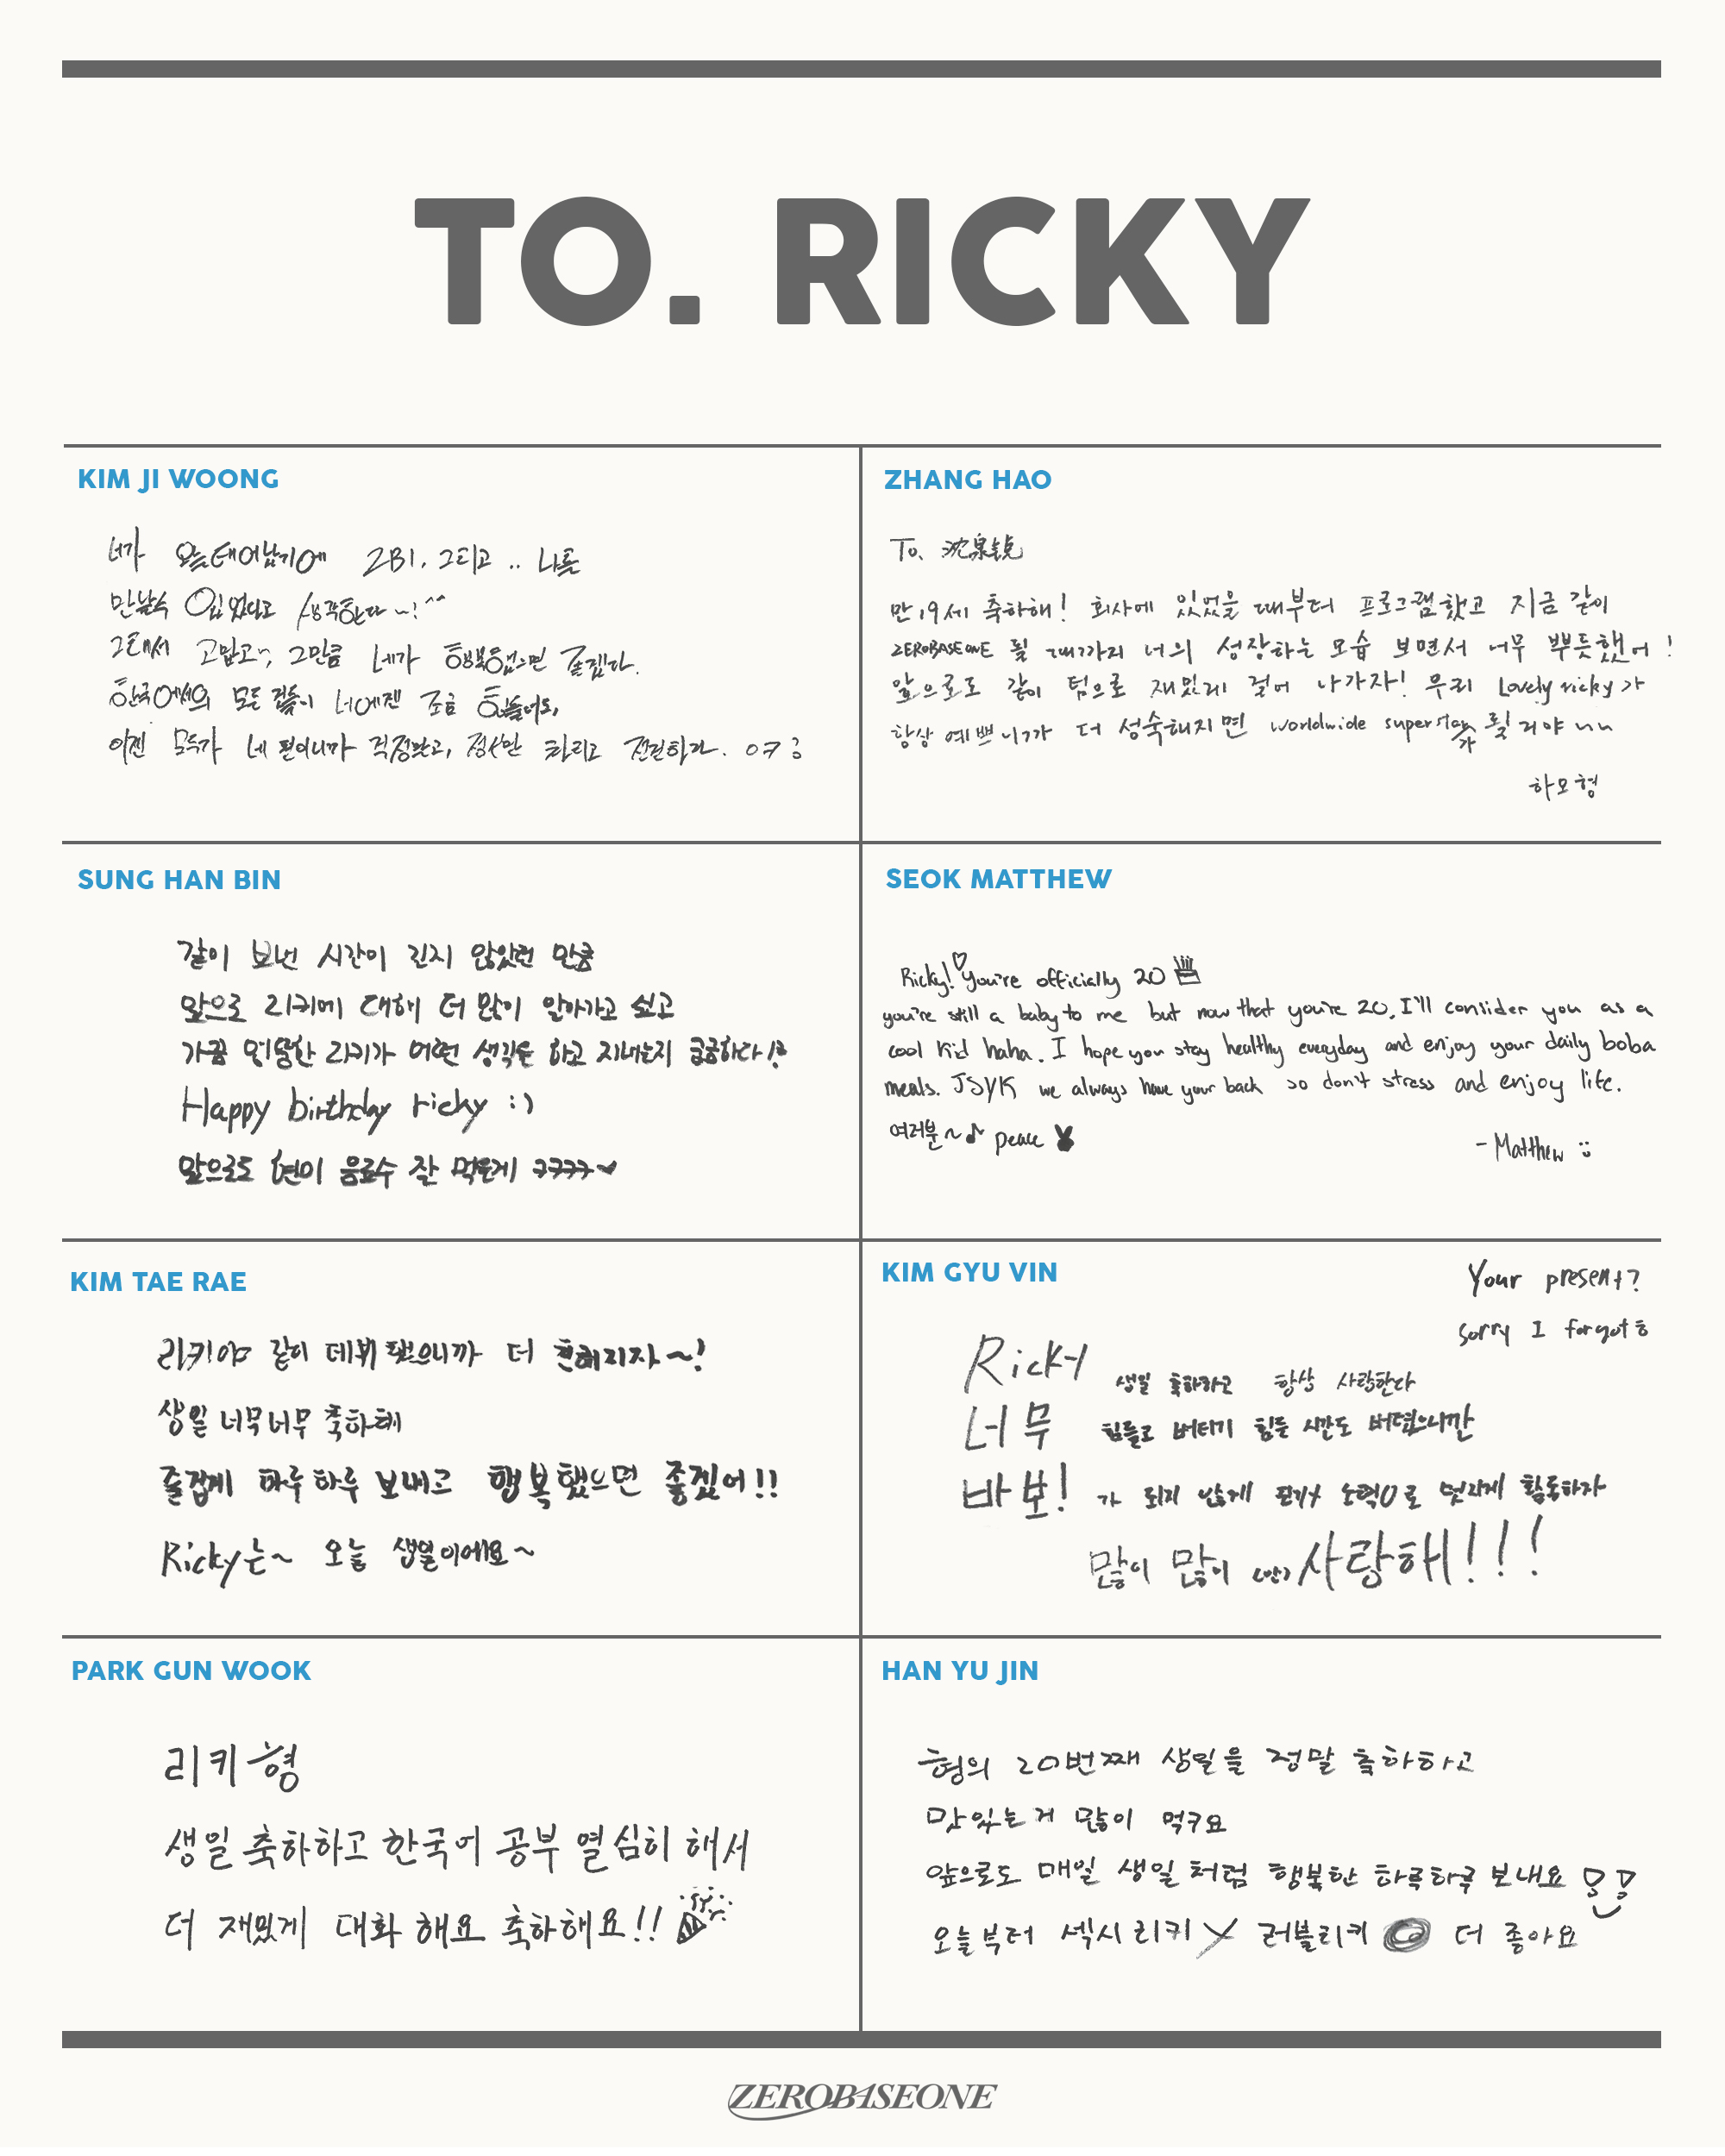 TO. RICKY
KIM JI WOONG
네가 오늘 태어났기에 ZB1, 그리고 .. 나를
만날 수 있었다고 생각한다~! ^^
그래서 고맙고~, 그만큼 네가 행복했으면 좋겠다.
한국에서의 모든 것들이 너에겐 조금 힘들어도,
이젠 모두가 네 편이니까 걱정말고, 정신만 차리고 전진하라. ㅇㅋ?
ZHANG HAO
To. 沈泉锐
만 19세 축하해! 회사에 있었을 때부터 프로그램했고 지금 같이
ZEROBASEONE 될 때까지 너의 성장하는 모습 보면서 너무 뿌듯했어!
앞으로도 같이 팀으로 재밌게 걸어 나가자! 우리 Lovely ricky가
항상 예쁘니까 더 성숙해지면 worldwide superstar가 될거야 ㅆㅆ
하오형
SUNG HAN BIN
같이 보낸 시간이 길지 않았던 만큼
앞으로 리키에 대해 더 많이 알아가고 싶고
가끔 멍때한 리키가 어떤 생각을 하고 지내는지 궁금하다!?
Happy birthday ricky :)
앞으로도 현미 음료수 잘 먹을게 ㅋㅋㅋㅋ♥
SEOK MATTHEW
Ricky!♡ You're officially 20
you're still a baby to me but now that you're 20, I'll consider you as a
cool kid haha. I hope you stay healthy everyday and enjoy your daily boba
meals. JSYK we always have your back so don't stress and enjoy life.
여러분~♪ peace
- Matthew :)
KIM TAE RAE
리키야 같이 데뷔 했으니까 더 친해지자~!
생일 너무너무 축하해
즐겁게 하루하루 보내고 행복했으면 좋겠어!!
Ricky는~ 오늘 생일이에요~
KIM GYU VIN
Your present?
sorry I forgot ㅎ
Ricky 생일 축하하고 항상 사랑한다
너무 힘들고 버티기 힘든 시간도 버텼으니깐
바보! 가 되지 않게 둘 다 노력으로 멋지게 활동하자
많이 많이 (안)사랑해!!!
PARK GUN WOOK
리키형
생일 축하하고 한국어 공부 열심히 해서
더 재밌게 대화 해요 축하해요!!
HAN YU JIN
형의 20번째 생일을 정말 축하하고
맛있는거 많이 먹구요
앞으로도 매일 생일처럼 행복한 하루하루 보내요
오늘부터 섹시리키 X 러블리키 O 더 좋아요
ZEROBASEONE